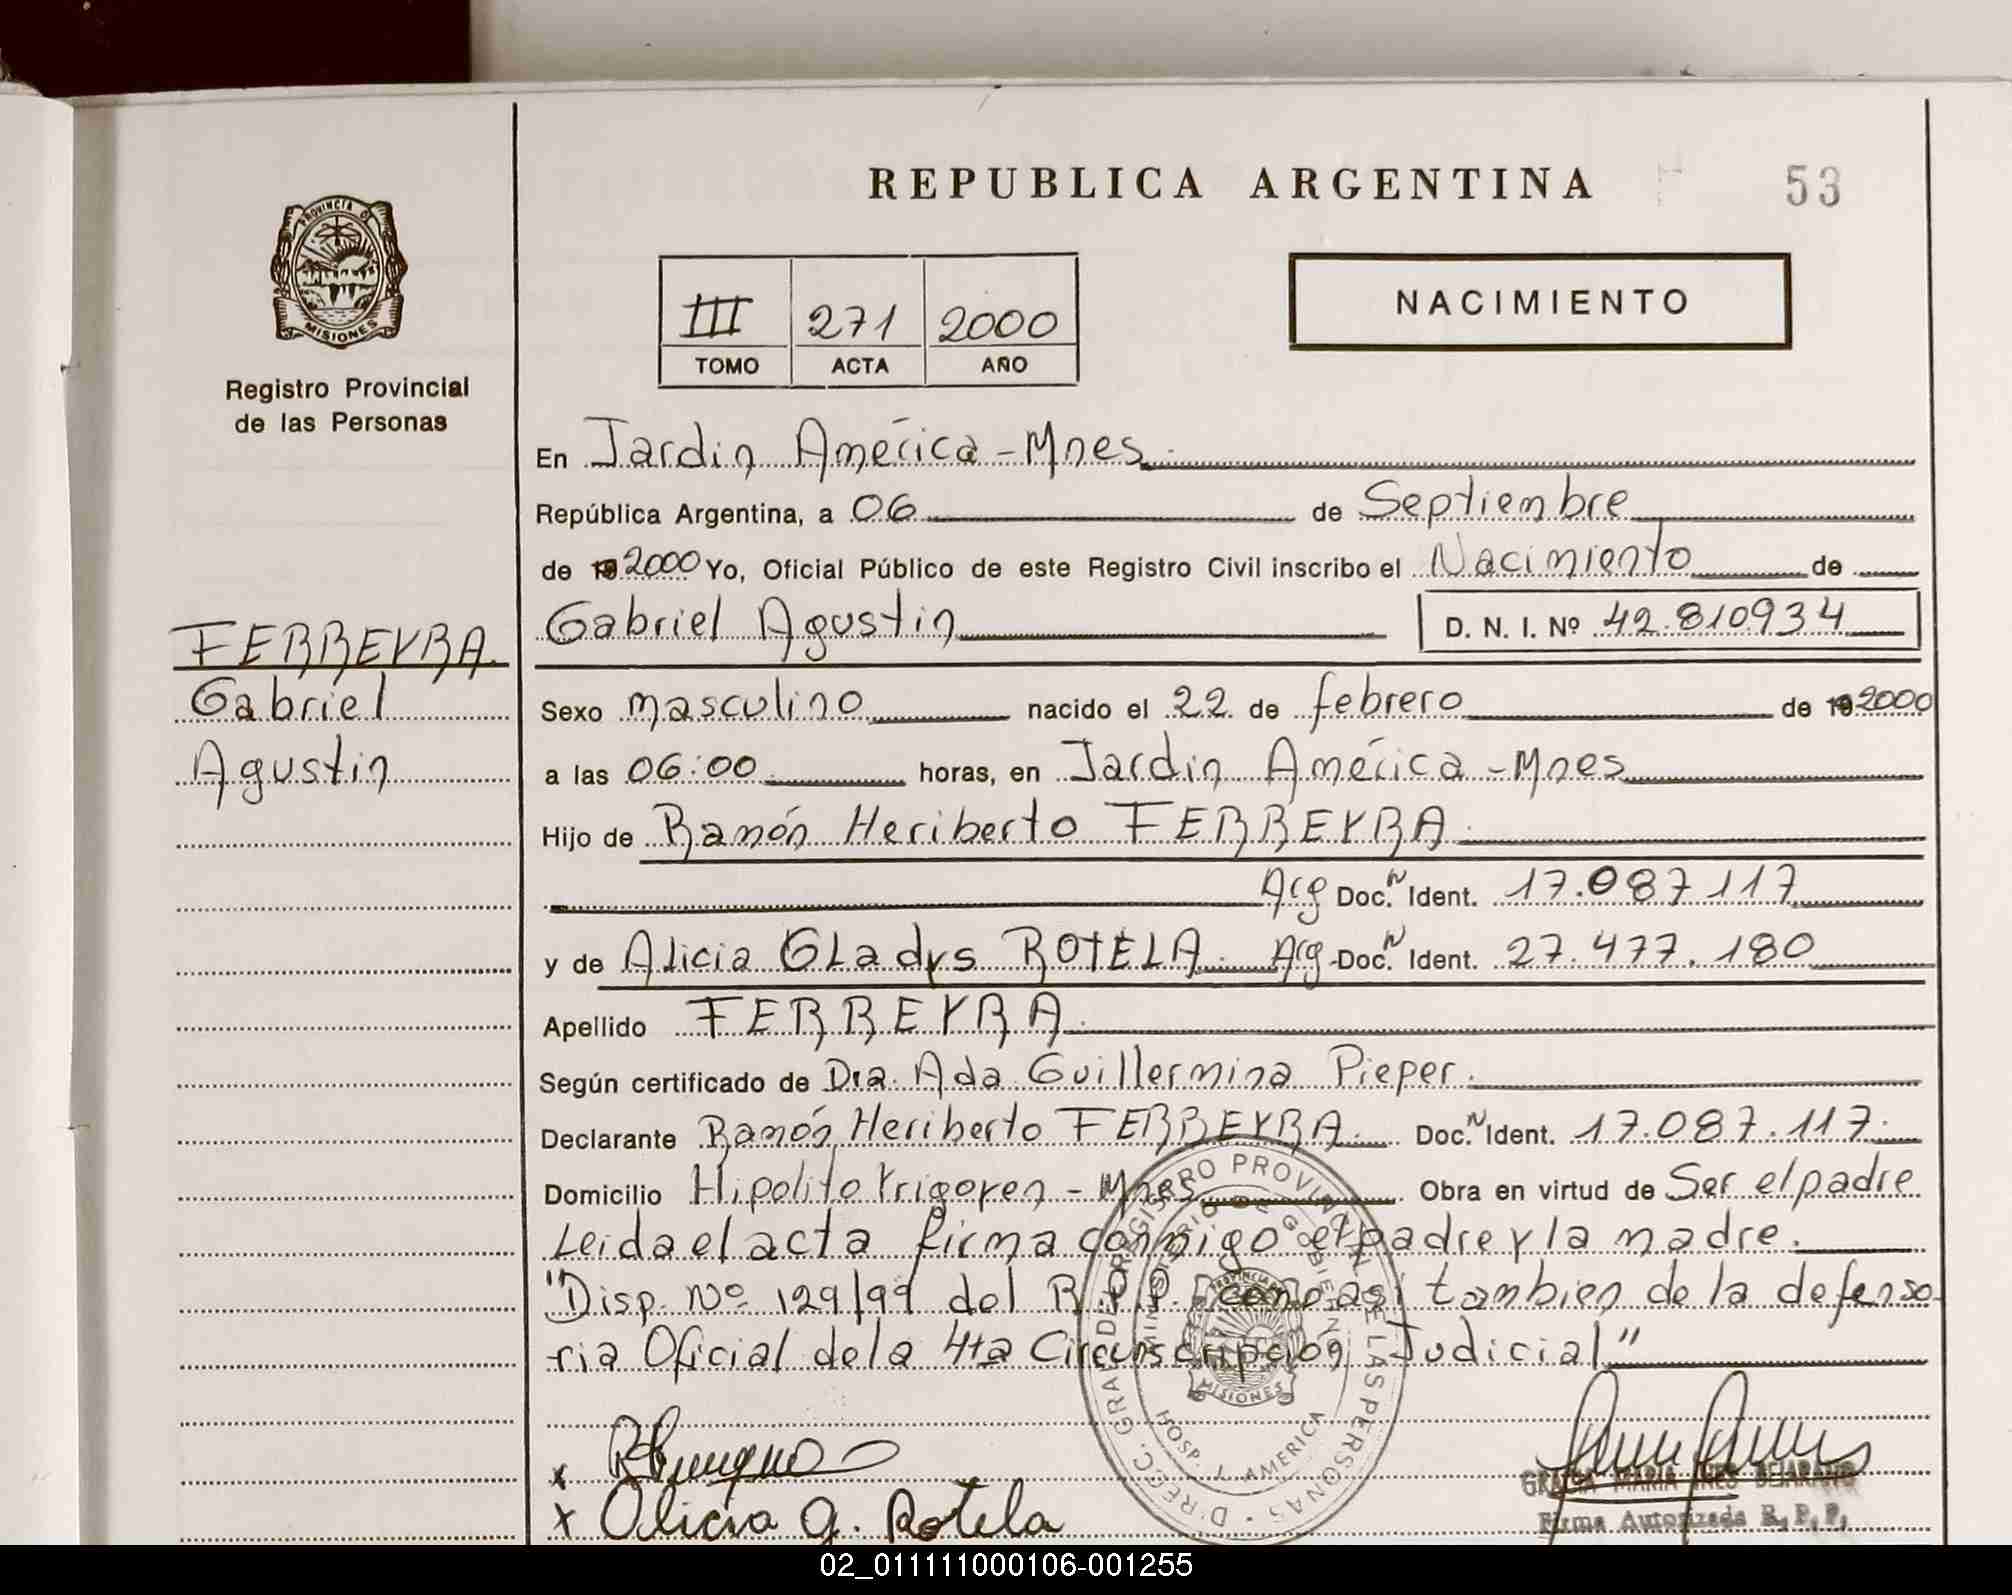 REPUBLICA ARGENTINA
53
PROVINCIA DE
MISIONES
Registro Provincial
de las Personas
III 271 2000
TOMO ACTA AÑO
NACIMIENTO
En Jardin América - Mnes.
República Argentina, a 06 de Septiembre
de 19 2000 Yo, Oficial Público de este Registro Civil inscribo el Nacimiento de
Gabriel Agustin D. N. I. Nº 42.810934
FERREYRA.
Gabriel
Agustin
Sexo masculino nacido el 22 de febrero de 19 2000
a las 06:00 horas, en Jardin América - Mnes
Hijo de Ramón Heriberto FERREYRA.
Arg Doc. N Ident. 17.087117
y de Alicia Gladys ROTELA. Arg Doc. N Ident. 27.477.180
Apellido FERREYRA.
Según certificado de Dra. Ada Guillermina Pieper.
Declarante Ramón Heriberto FERREYRA. Doc. N Ident. 17.087.117.
Domicilio Hipolito Yrigoyen - Mnes Obra en virtud de Ser el padre
Leida el acta firma conmigo el padre y la madre.
"Disp. Nº 129/99 del R.P.P. como asi tambien de la defenso-
ria Oficial de la 4ta Circunscripción Judicial"
D'RECC. GRAL DEL REGISTRO PROVINCIAL DE LAS PERSONAS
MINISTERIO DE GOBIERNO
PROVINCIA DE
MISIONES
HOSP. J. AMERICA
x
x Alicia G. Rotela
MARIA INES BEJARANO
Firma Autorizada R. P. P.
02_011111000106-001255